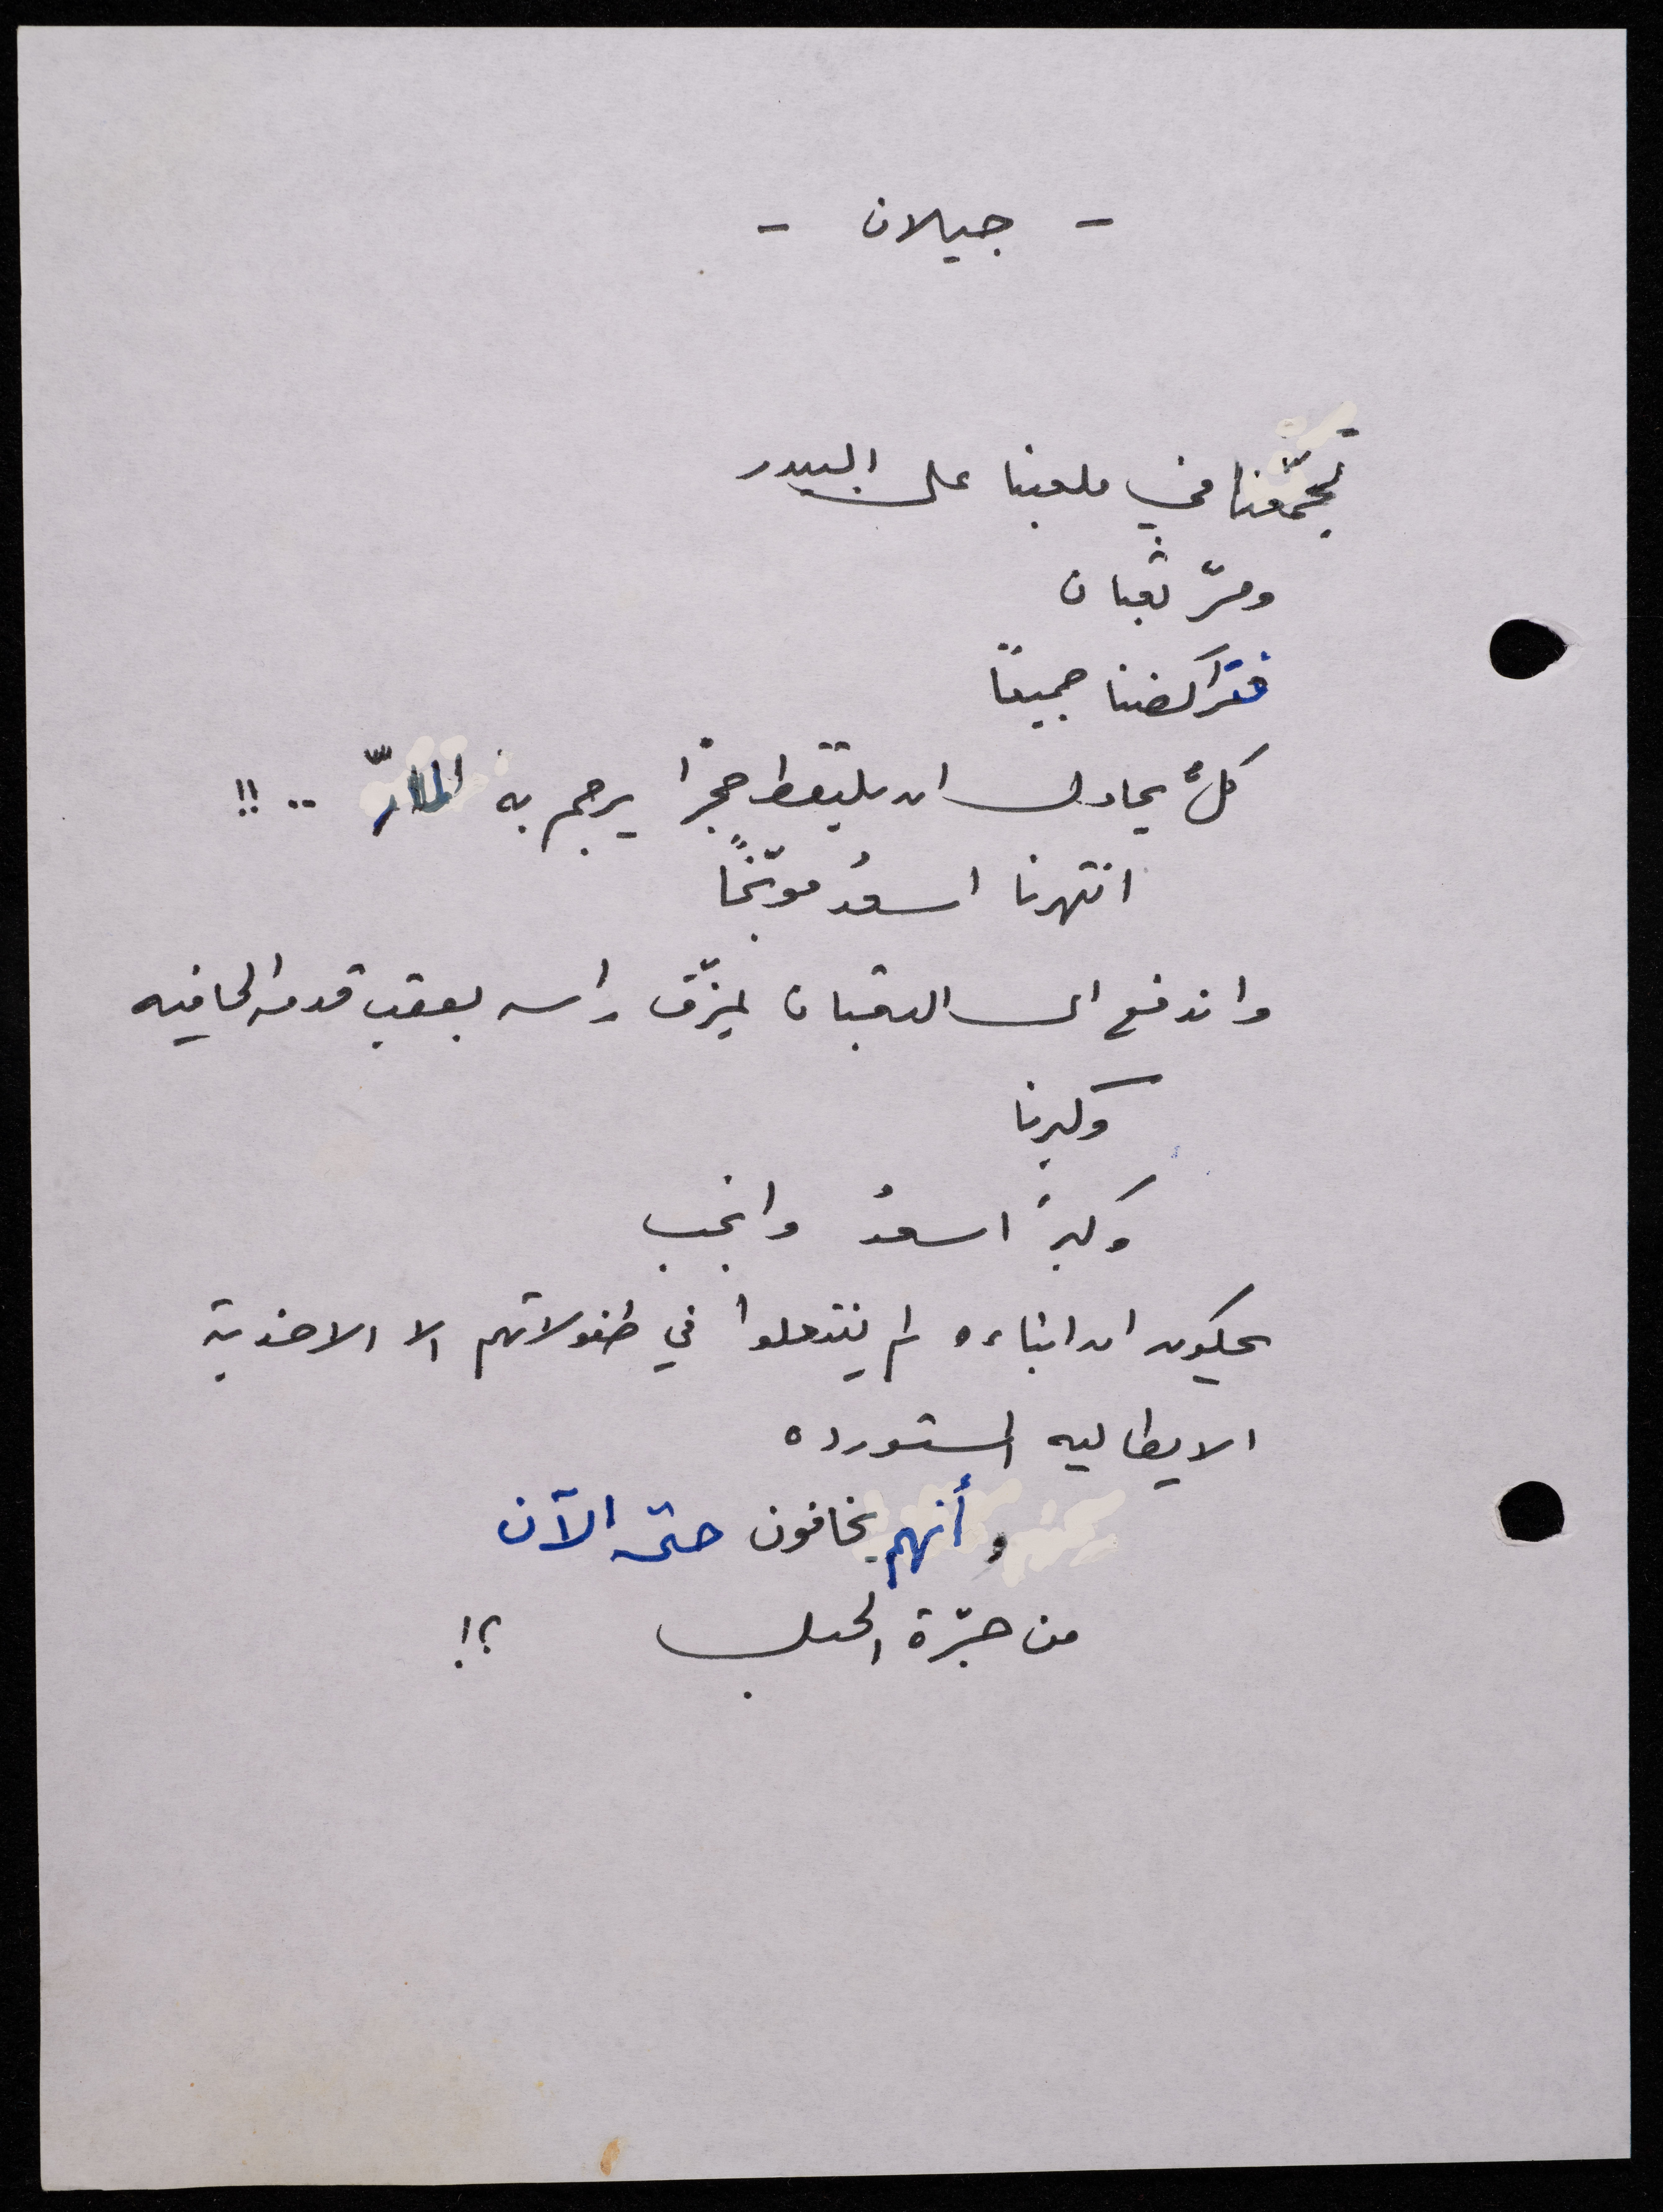 - جيلان -
تجمّعنا في ملعبنا على البيدر
ومرّ ثعبان
فتراكضنا جميعاً
كلٌ يحاول ان يلتقط حجرًا يرجم به المارّ .. !!
انتهرنا اسعدُ موبّخًا
واندفع الى الثعبان يمزّق راسه بعقب قدمه الحافيه
وكبرنا
وكبرَ اسعدُ وانجب
يحكون ان ابناءه لم ينتعلوا في طفولاتهم الا الاحذية
الايطاليه المستورده
وأنهم يخافون حتى الآن
من جرّة الحبل ؟!